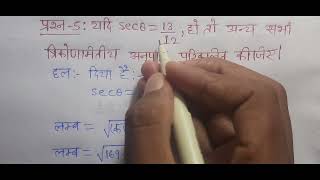 प्रश्न-5: यदि secθ = 13/12, हो तो अन्य सभी
त्रिकोणमितीय अनुपात परिकलित कीजिए।
हल:- दिया है:-
secθ =
लम्ब = √
लम्ब = √169